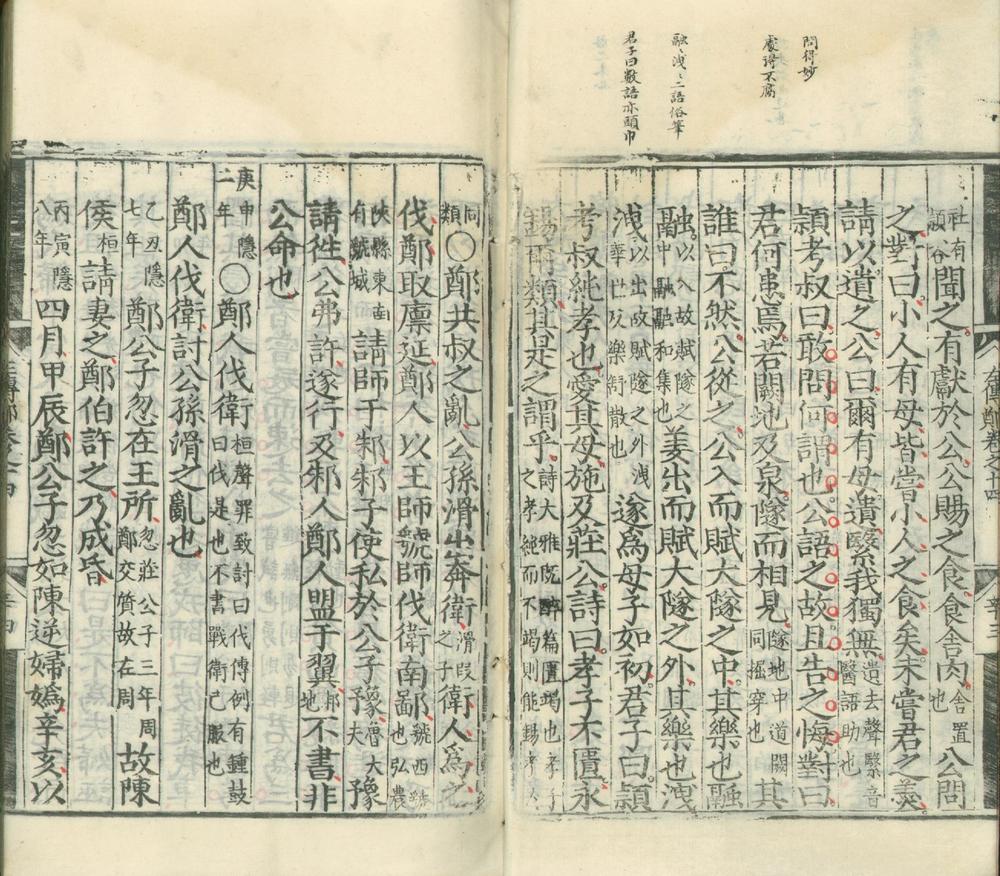 問得妙
處得不腐
融〻洩〻二語俗筆
君子曰數語亦頭巾
社有潁谷聞之有獻於公公賜之食食舍肉舍置也公問
之對曰小人有母皆嘗小人之食矣未嘗君之羹
請以遺之公曰爾有母遺繄我獨無遺去聲繄音醫語助也
潁考叔曰敢問何謂也公語之故且告之悔對曰
君何患焉若闕地及泉隧而相見隧地中道闕同掘穿也其
誰曰不然公從之公入而賦大隧之中其樂也融
融以入故賦隧之中融融和集也姜出而賦大隧之外其樂也洩
洩以出故賦隧之外洩華世反樂舒散也遂爲母子如初君子曰潁
考叔純孝也愛其母施及莊公詩曰孝子不匱永
錫爾類其是之謂乎詩大雅既醉篇匱竭也孝子之孝純而不竭則能錫孝
同類○鄭共叔之亂公孫滑出奔衛滑叚之子衛人爲之
伐鄭取廪延鄭人以王師虢師伐衛南鄙虢西虢也弘農
陝縣東南有虢城請師于邾邾子使私於公子豫魯大夫豫
請往公弗許遂行及邾人鄭人盟于翼邾地不書非
公命也
庚申隱二年○鄭人伐衛桓聲罪致討曰伐傳例有鍾鼓曰伐是也不書戰衛已服也
鄭人伐衛討公孫滑之亂也
乙丑隱七年鄭公子忽在王所忽莊公子三年周鄭交質故在周故陳
侯桓請妻之鄭伯許之乃成昏
丙寅隱八年四月甲辰鄭公子忽如陳逆婦媯辛亥以